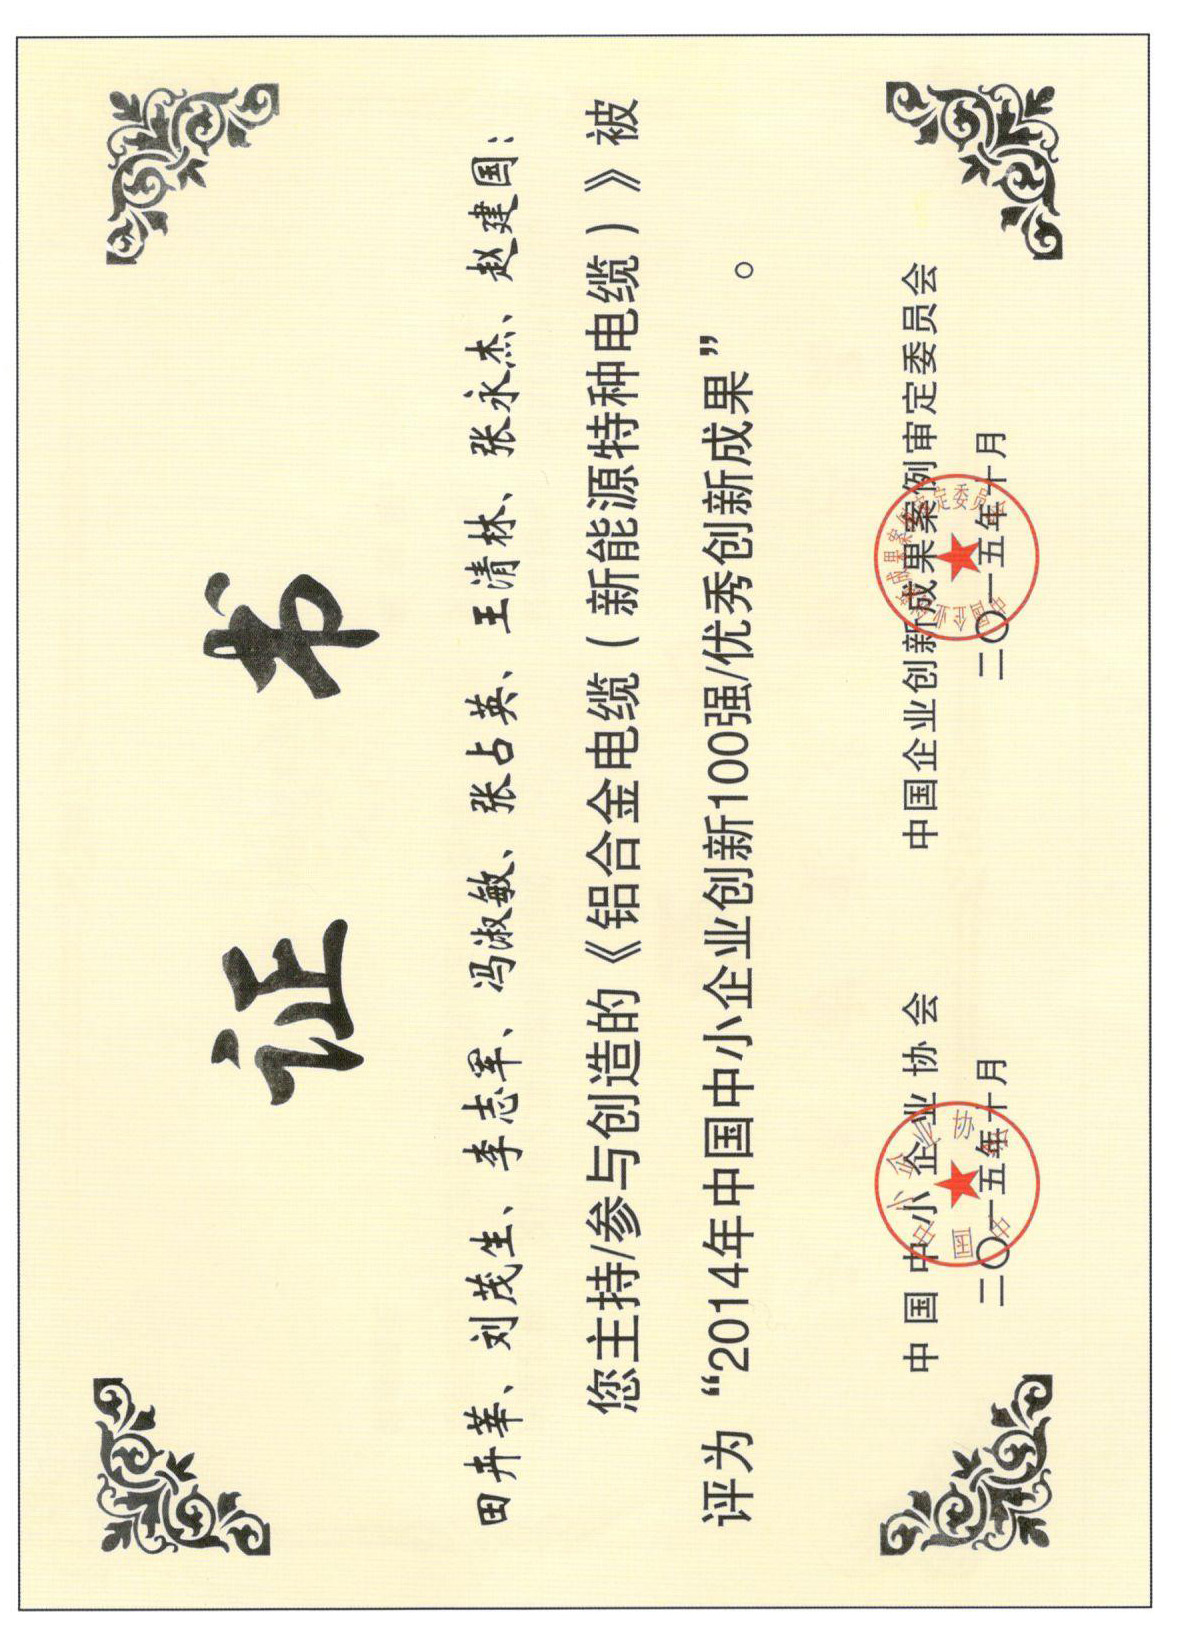 证书
田卉莘、刘茂生、李志军、冯淑敏、张占英、王清林、张永杰、赵建国：
您主持/参与创造的《铝合金电缆（新能源特种电缆）》被
评为“2014年中国中小企业创新100强/优秀创新成果”。
中国中小企业协会
二〇一五年十月
中国中小企业协会
中国企业创新成果案例审定委员会
二〇一五年十月
中国企业创新成果案例审定委员会